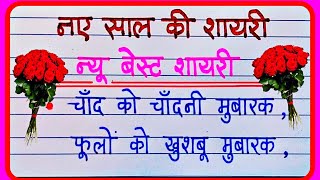 नए साल की शायरी
न्यू बेस्ट शायरी
चाँद को चाँदनी मुबारक,
फूलों को खुशबू मुबारक,